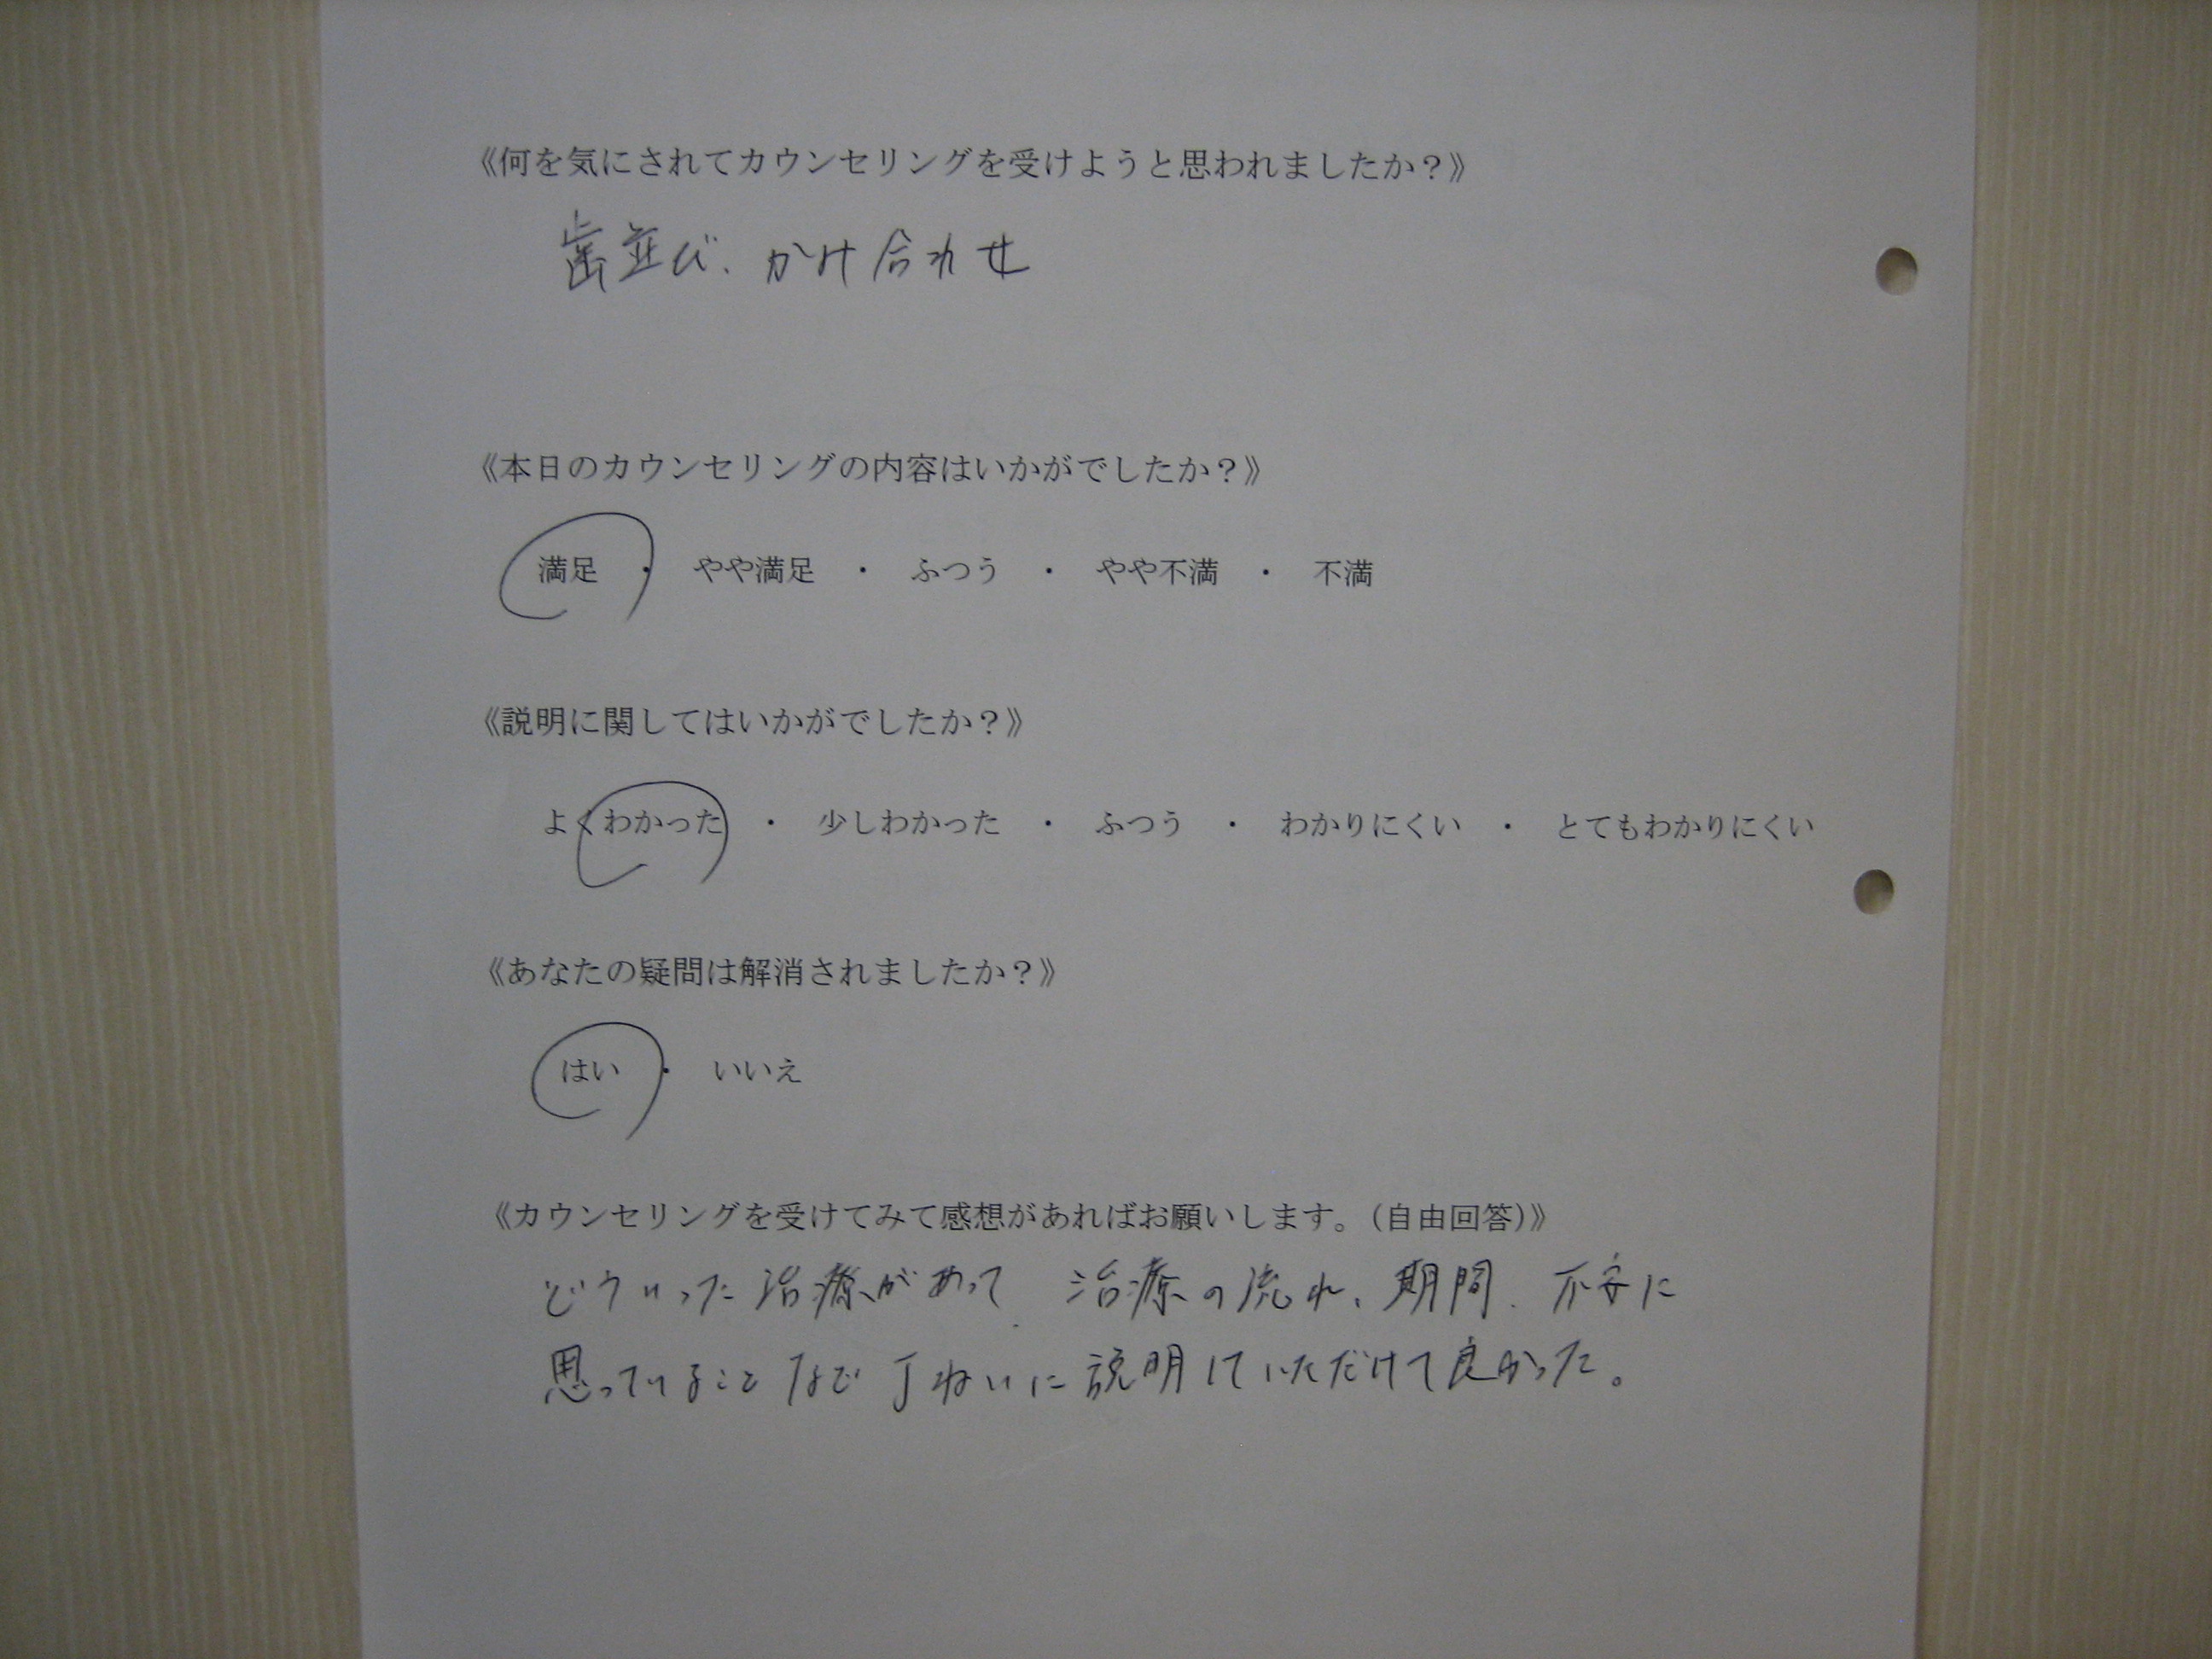 《何を気にされてカウンセリングを受けようと思われましたか？》
歯並び、かけ合わせ
《本日のカウンセリングの内容はいかがでしたか？》
満足 ・ やや満足 ・ ふつう ・ やや不満 ・ 不満
《説明に関してはいかがでしたか？》
よくわかった ・ 少しわかった ・ ふつう ・ わかりにくい ・ とてもわかりにくい
《あなたの疑問は解消されましたか？》
はい ・ いいえ
《カウンセリングを受けてみて感想があればお願いします。（自由回答）》
どういった治療があって、治療の流れ、期間、不安に
思っていることなど丁ねいに説明していただけて良かった。